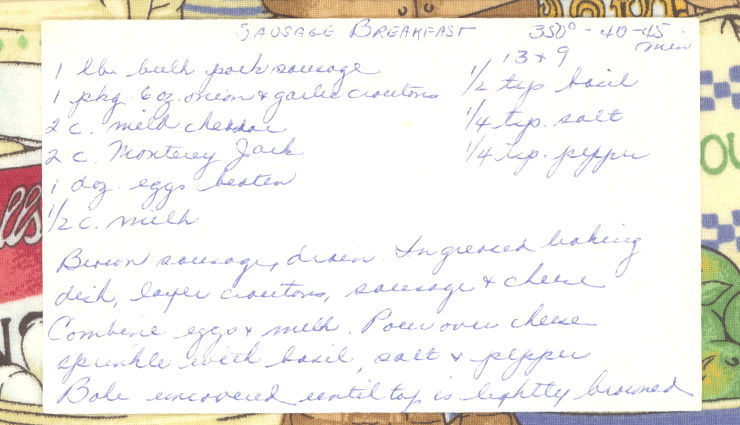 SAUSAGE BREAKFAST 350° - 40-45 min
13 x 9
1 lb. bulk pork sausage
1 pkg. 6 oz. onion & garlic croutons
2 c. mild cheddar
2 c. Monterey Jack
1 doz. eggs beaten
1/2 c. milk
1/2 tsp basil
1/4 tsp. salt
1/4 tsp. pepper
Brown sausage, drain. In greased baking
dish, layer croutons, sausage & cheese
Combine eggs & milk. Pour over cheese
sprinkle with basil, salt & pepper
Bake uncovered until top is lightly browned